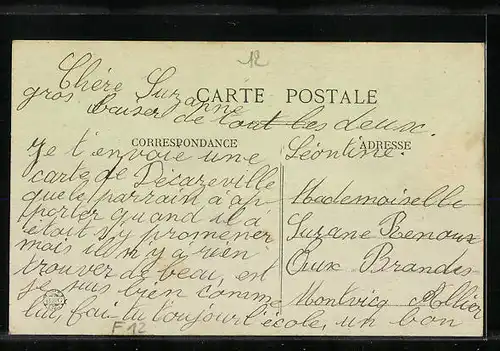 12
Chère Suzanne
CARTE POSTALE
gros baiser de tout les deux.
Léontine.
CORRESPONDANCE
ADRESSE
Je t'envoie une
carte de Décazeville
que le parrain a ap
porter quand il á
etait s'y promener
mais il n'y á rein
trouver de beau, est
je suis bien comme
lui, fai tu toujour l'école, un bon
Mademoiselle
Suzane Renoux
Aux Brandes
Montvicq Allier
F12